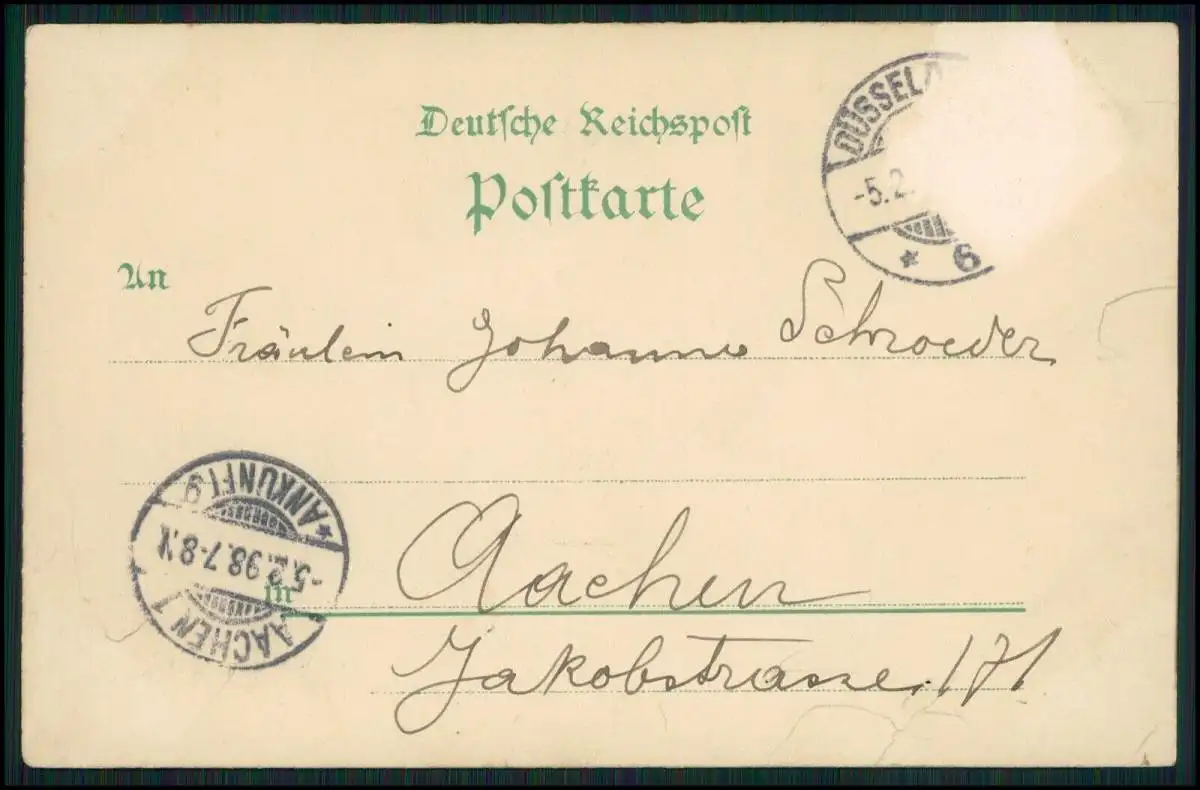 Deutsche Reichspost
Postkarte
DÜSSEL
-5.2.
* 6
An
Fräulein Johanna Schroeder
* ANKUNFT.9
-5.2.98.7-8.V.
AACHEN 1
in
Aachen
Jakobstrasse. 171